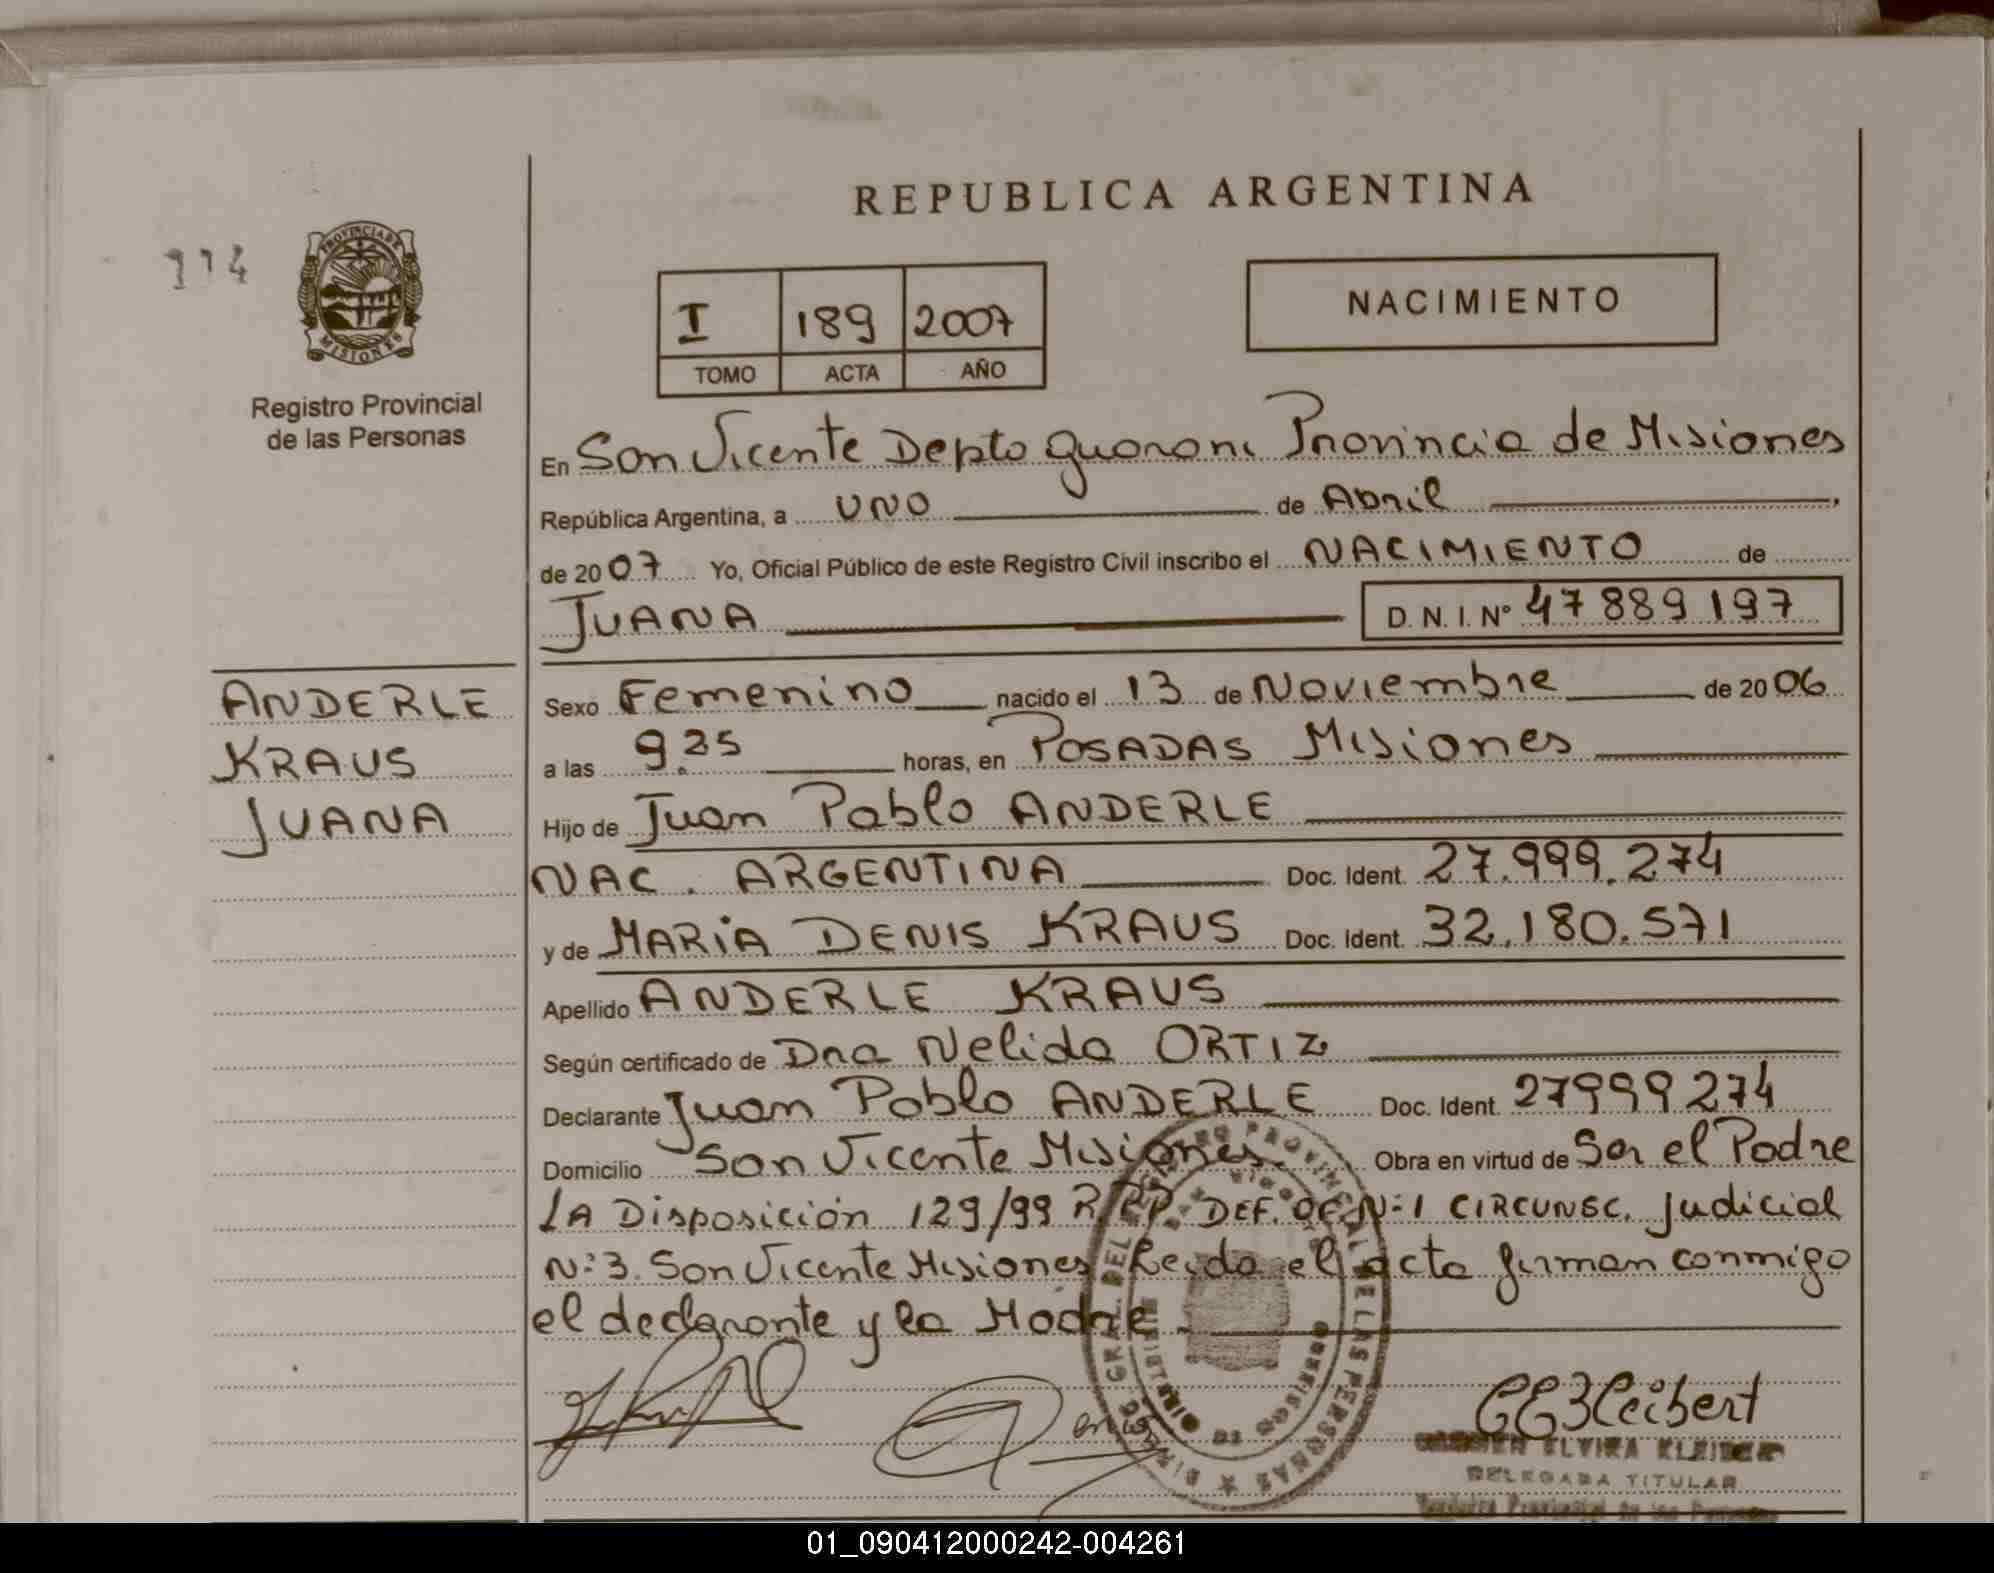 REPUBLICA ARGENTINA
114
PROVINCIA DE
MISIONES
Registro Provincial
de las Personas
I 189 2007
TOMO ACTA AÑO
NACIMIENTO
En San Vicente Depto Guarani Provincia de Misiones
República Argentina, a UNO de Abril
de 2007 Yo, Oficial Público de este Registro Civil inscribo el NACIMIENTO de
JUANA D. N. I. N° 47889197
ANDERLE
KRAUS
JUANA
Sexo Femenino nacido el 13 de Noviembre de 2006
a las 9.25 horas, en POSADAS Misiones
Hijo de Juan Pablo ANDERLE
NAC. ARGENTINA Doc. Ident. 27.999.274
y de MARiA DENIS KRAUS Doc. Ident. 32.180.571
Apellido ANDERLE KRAUS
Según certificado de Dra Nelida ORTIZ
Declarante Juan Pablo ANDERLE Doc. Ident. 27999274
Domicilio San Vicente Misiones Obra en virtud de Ser el Padre
LA Disposición 129/99 R.P.P. DEF. OF. N:1 CIRCUNSC. Judicial
N:3. San Vicente Misiones Leida el acta firman conmigo
el declarante y la Madre.
ELVIRA
DELEGADA TITULAR
Registro Provincial de las Personas
01_090412000242-004261